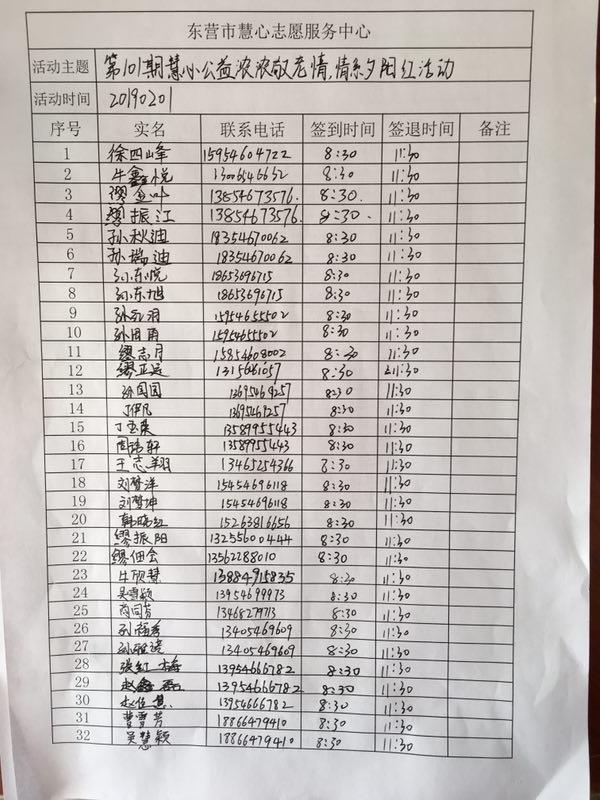 东营市慧心志愿服务中心
活动主题 第101期慧心公益浓浓敬老情,情系夕阳红活动
活动时间 20190201
序号 实名 联系电话 签到时间 签退时间 备注
1 徐四峰 15954604722 8:30 11:30
2 牛鑫悦 8:30 11:30
3 缪金叶 13854673576. 8:30. 11:30
4 缪振江 13854673576. 8:30. 11:30
5 孙秋迪 18354670062 8:30 11:30
6 孙瑞迪 18354670062 8:30 11:30
7 孙东悦 18653696715 8:30 11:30
8 孙东旭 18653696715 8:30 11:30
9 15954655502 8:30 11:30
10 1595465502 8:30 11:30
11 缪志丹 15854608002 8:30 11:30
12 缪亚运 8:30 11:30
13 孙国国 13695469257 8:30 11:30
14 丁伊凡 13695469257 8:30 11:30
15 丁玉英 13589955443 8:30 11:30
16 13589955443 8:30 11:30
17 王志翔 13465254366 8:30 11:30
18 刘梦洋 15454696118 8:30 11:30
19 刘梦坤 15454696118 8:30 11:30
20 韩晓红 15263816656 8:30 11:30
21 缪振阳 13255600444 8:30 11:30
22 缪佃会 13562288010 8:30 11:30
23 牛欣慧 13884915835 8:30 11:30
24 吴雪颖 13954699973 8:30 11:30
25 13468279713 8:30 11:30
26 13405469609 8:30 11:30
27 13405469609 8:30 11:30
28 张红梅 13954666782 8:30 11:30
29 赵鑫磊 13954666782 8:30 11:30
30 赵佳慧 13954666782 8:30 11:30
31 曹雪芳 18866479410 8:30 11:30
32 吴慧颖 18866479410 8:30 11:30